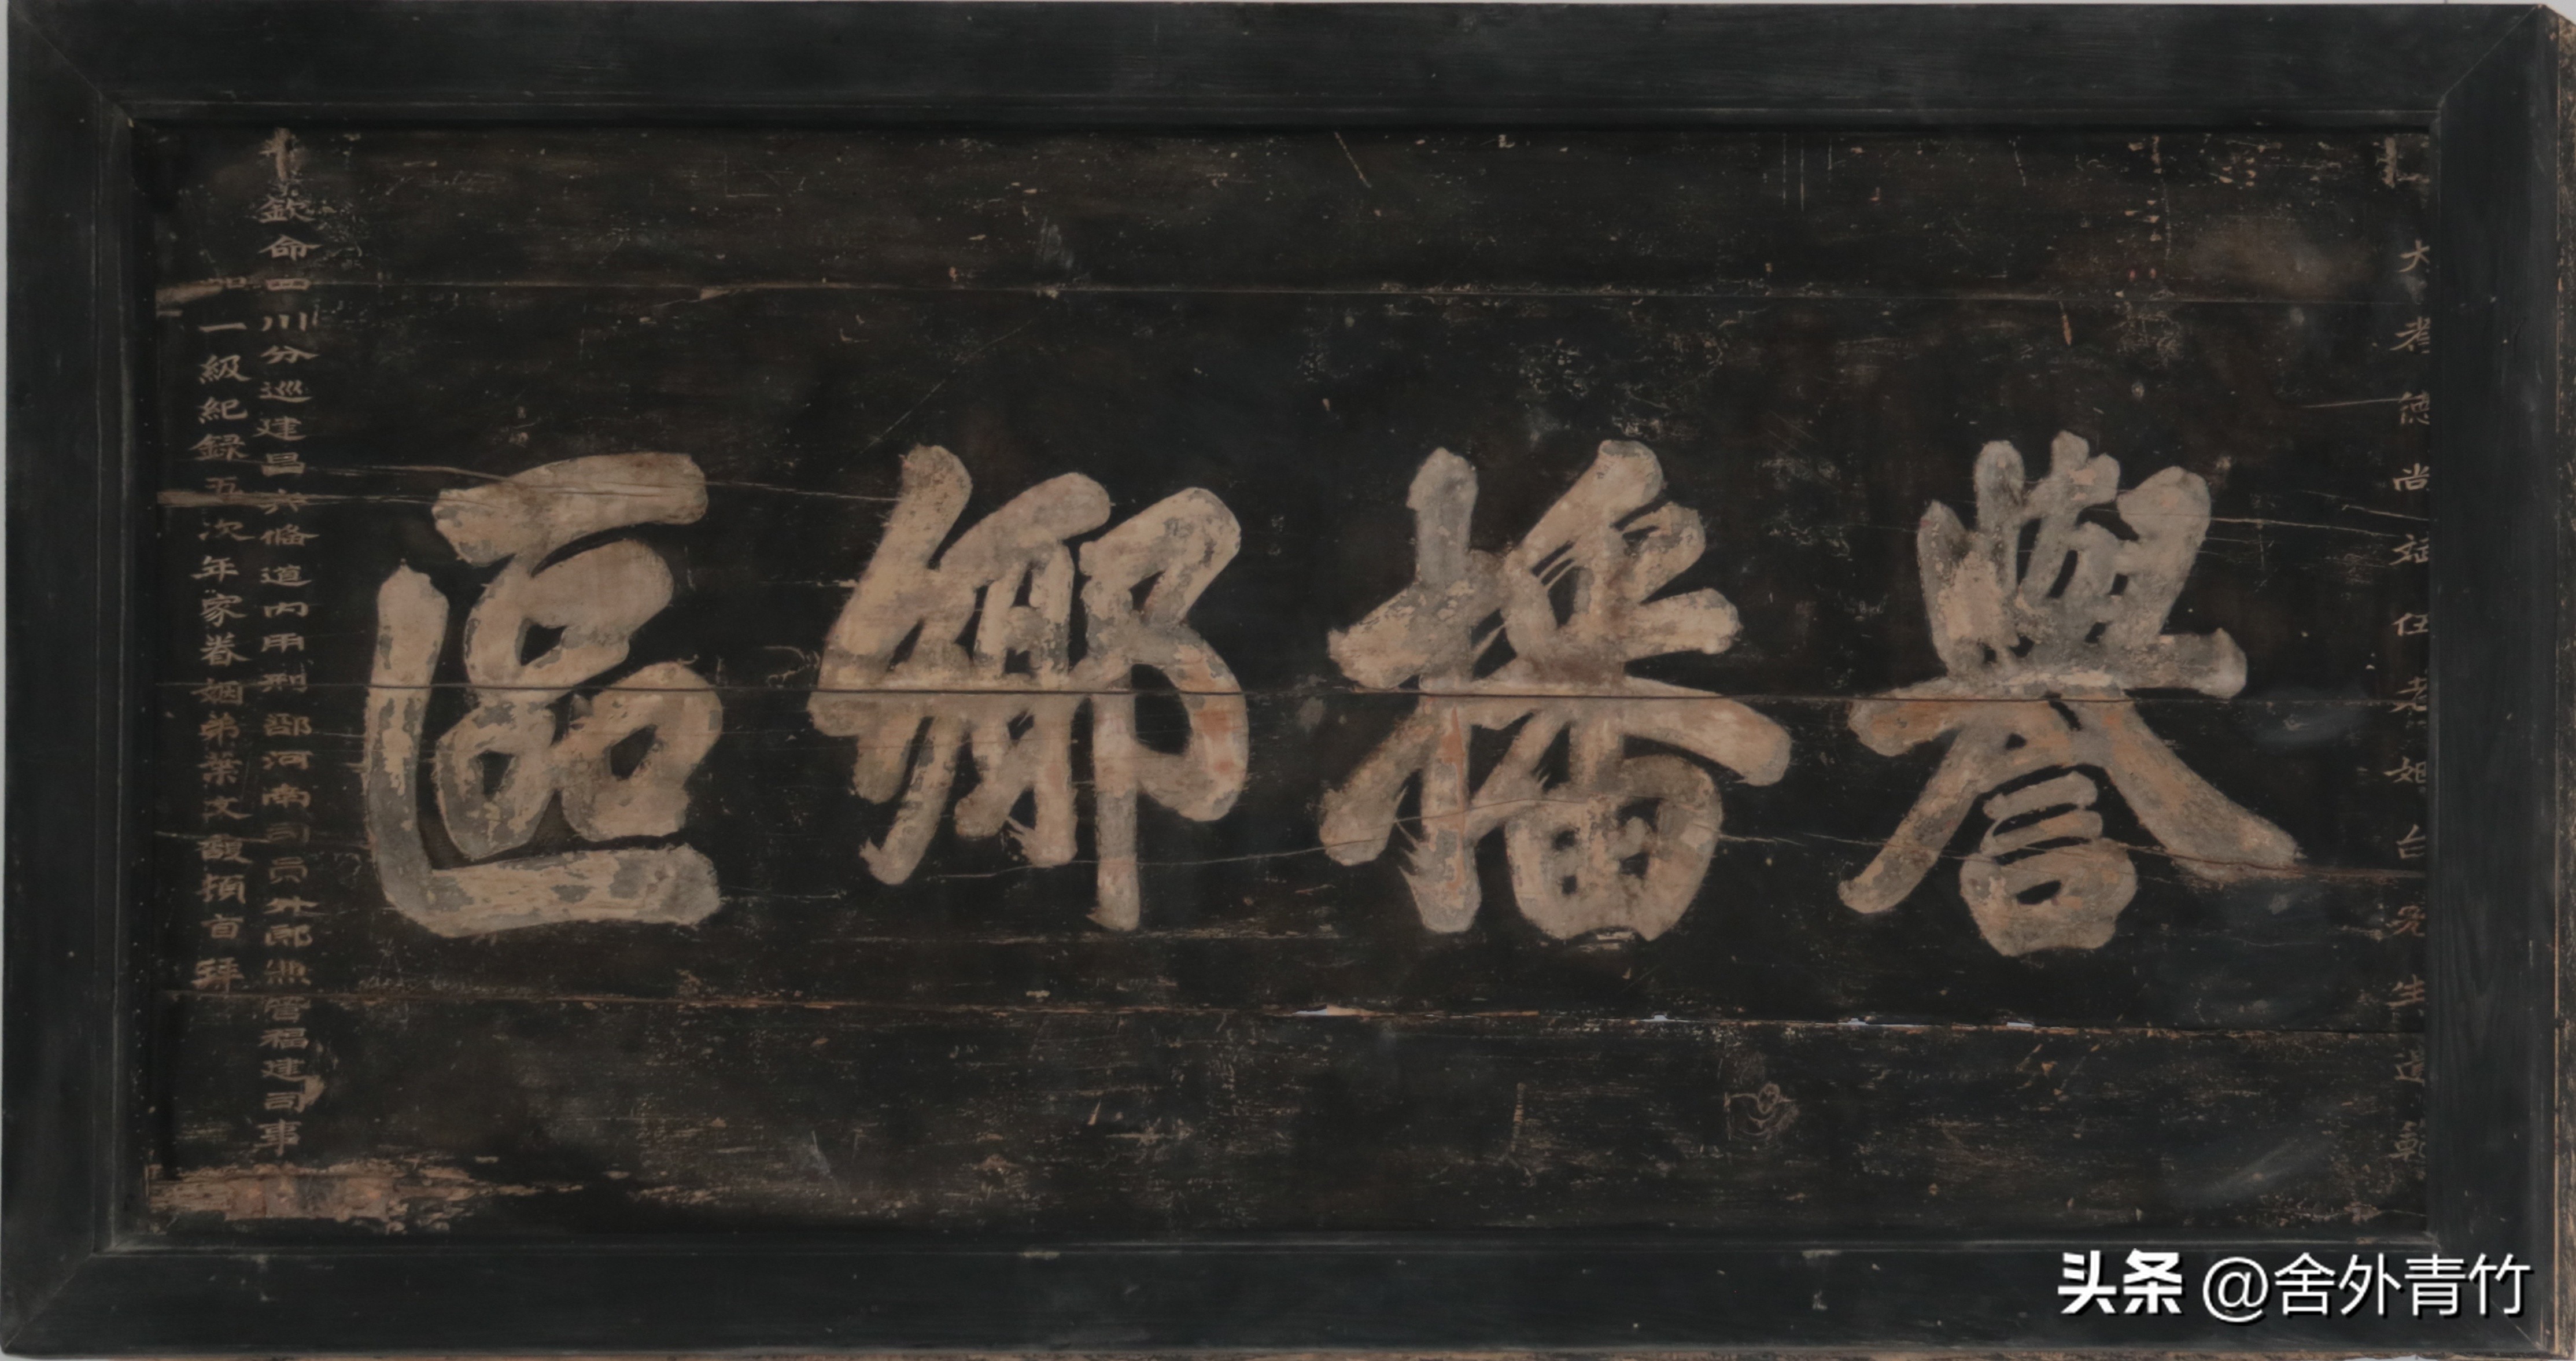 大耆德尚斌伍老姻台先生
譽播鄉區
欽命四川分巡建昌兵備道內用刑部河南司員外郎兼管福建司事
一級紀錄五次年家眷姻弟葉文馥頓首拜
头条 @舍外青竹